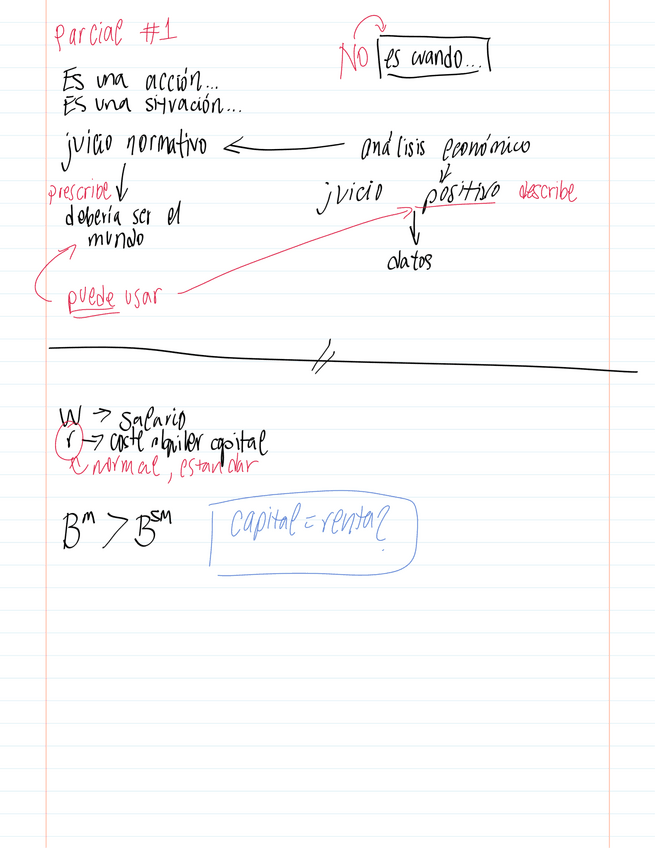 Parcial #1
NO es cuando...
Es una acción...
Es una situación...
juicio normativo ← análisis económico
prescribe ↓ juicio positivo describe
debería ser el
mundo
datos
puede usar
W → salario
r → coste alquiler capital
normal, estandar
Bᵐ > Bˢᴹ
capital = renta?